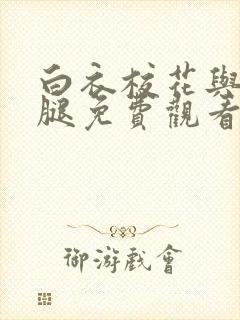 白衣校花與
腿免費觀看
御游戲會